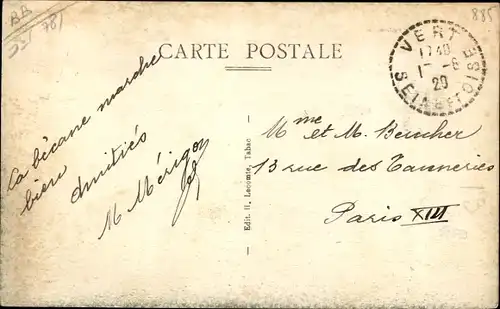 BB
885
CARTE POSTALE
VERT
17 40
1 - 6
29
SEINE ET OISE
La bécane marche
bien
Amitiés
M Mérigon
Mme et M. Beucher
13 rue des Tanneries
Paris XIII
Edit. H. Lecomte, Tabac